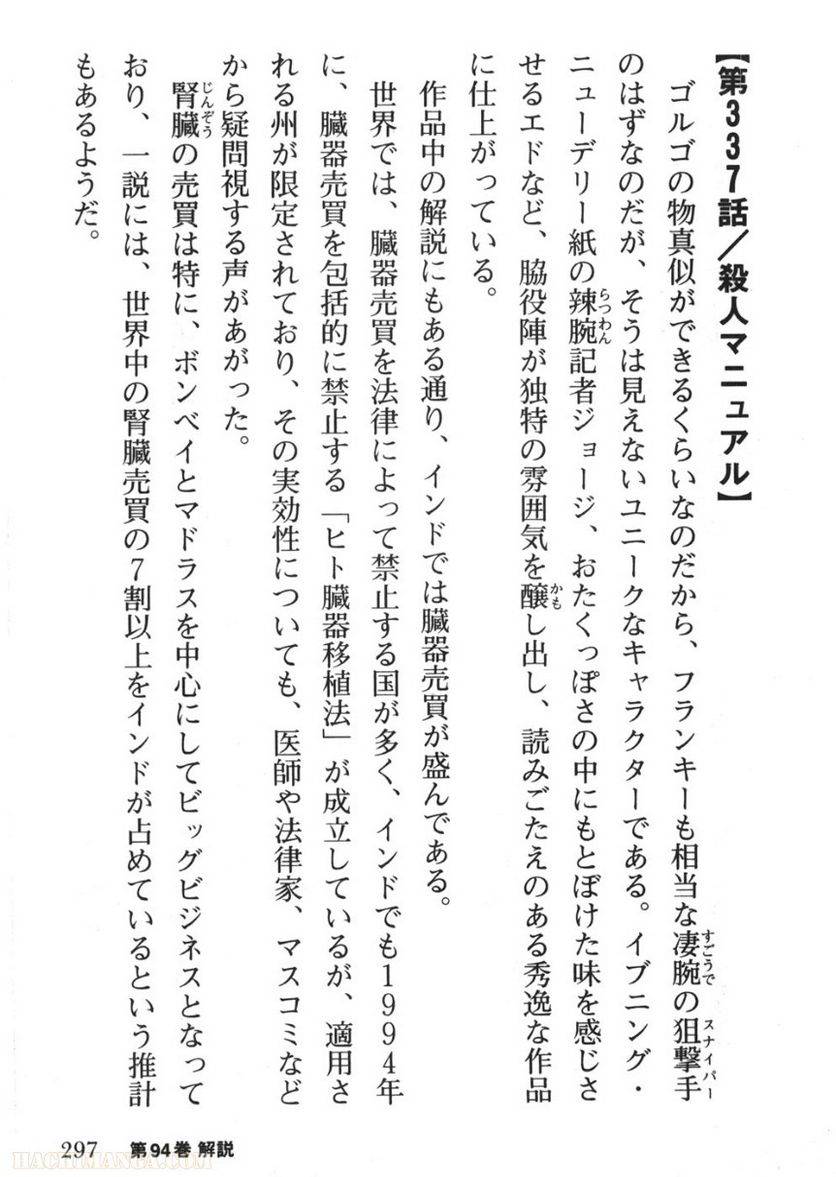 【第337話／殺人マニュアル】
ゴルゴの物真似ができるくらいなのだから、フランキーも相当な凄腕の狙撃手
のはずなのだが、そうは見えないユニークなキャラクターである。イブニング・
ニューデリー紙の辣腕記者ジョージ、おたくっぽさの中にもとぼけた味を感じさ
せるエドなど、脇役陣が独特の雰囲気を醸し出し、読みごたえのある秀逸な作品
に仕上がっている。
作品中の解説にもある通り、インドでは臓器売買が盛んである。
世界では、臓器売買を法律によって禁止する国が多く、インドでも1994年
に、臓器売買を包括的に禁止する「ヒト臓器移植法」が成立しているが、適用さ
れる州が限定されており、その実効性についても、医師や法律家、マスコミなど
から疑問視する声があがった。
腎臓の売買は特に、ボンベイとマドラスを中心にしてビッグビジネスとなって
おり、一説には、世界中の腎臓売買の7割以上をインドが占めているという推計
もあるようだ。
297 第94巻 解説
HACHIMANGA.COM